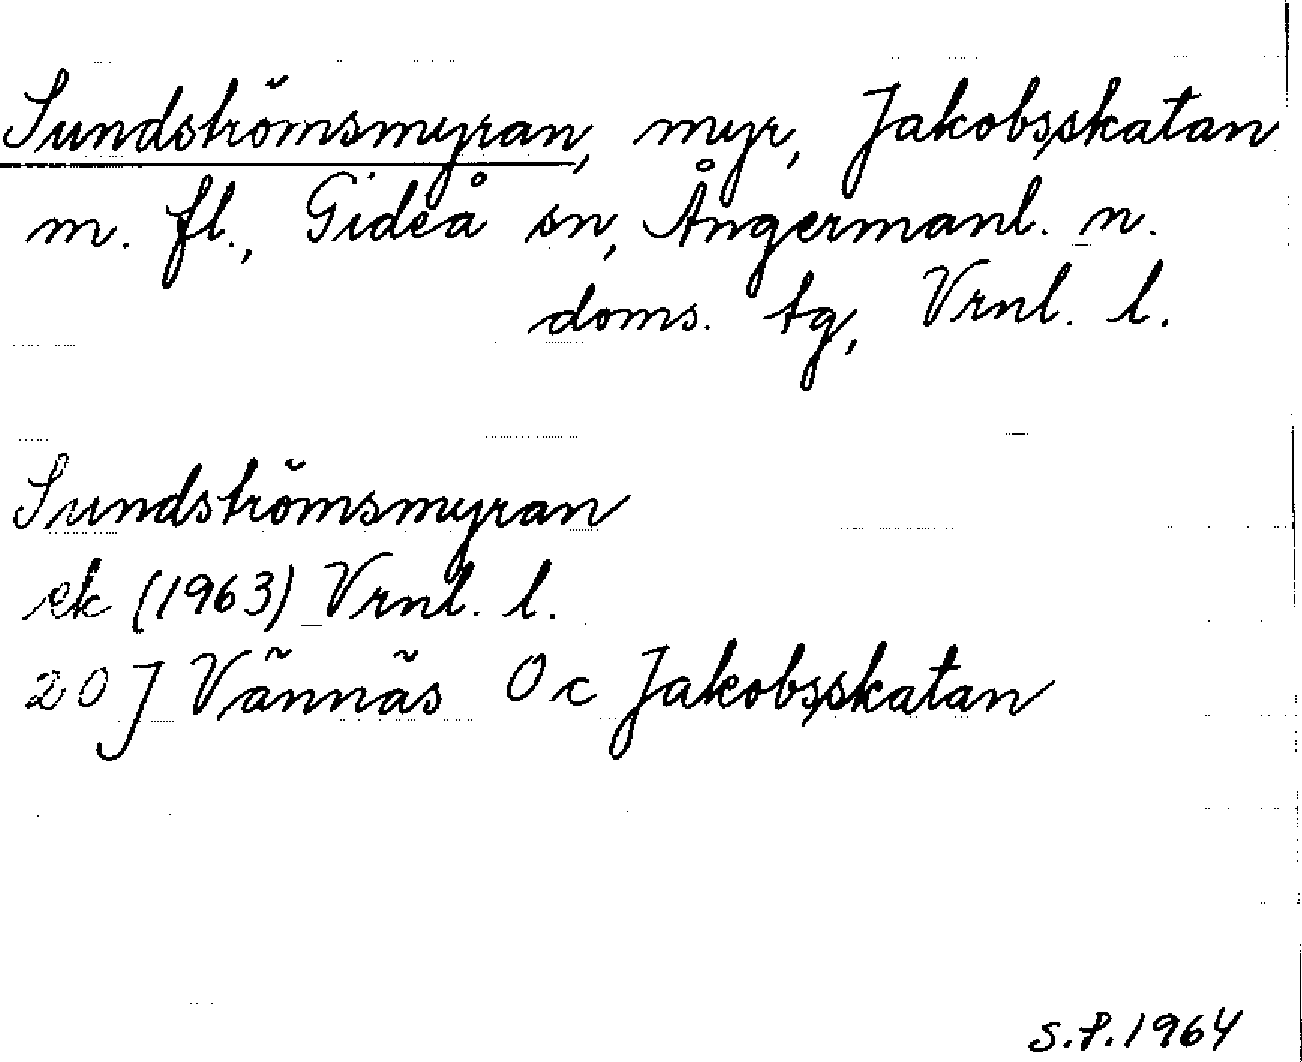 Sundströmsmyran, myr, Jakobsskatan
m. fl., Gideå sn, Ångermanl. n.
doms. tg, Vrnl. l.
Sundströmsmyran
ek (1963) Vrnl. l.
20 J Vännäs 0 c Jakobsskatan
S.P. 1964